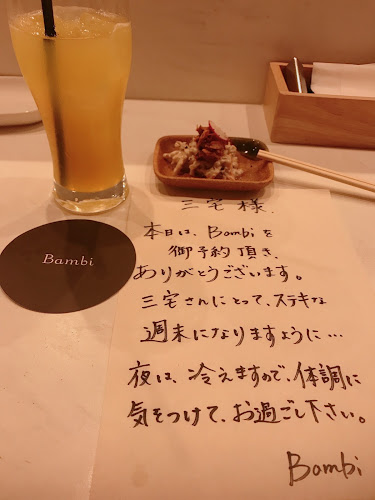 Bambi
三宅様.
本日は、Bambiを
御予約頂き、
ありがとうございます。
三宅さんにとって、ステキな
週末になりますように…
夜は、冷えますので、体調に
気をつけて、お過ごし下さい。
Bambi